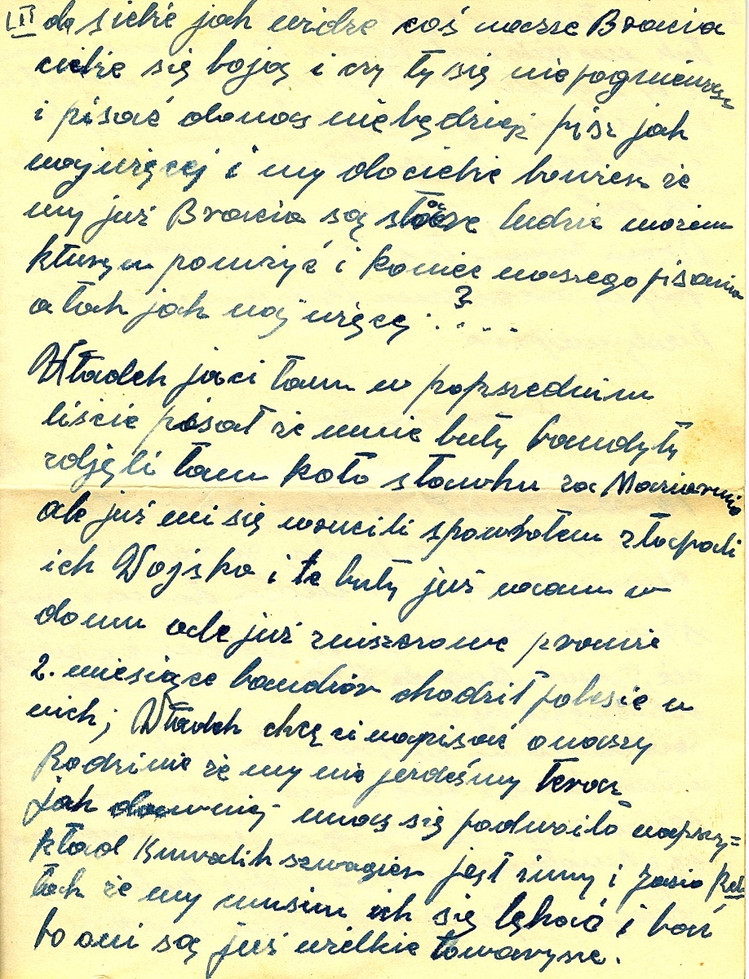 III do siebie jak widze coś nasze Bracia
ciebie się boją i czy ty się niepogniewasz
i pisać donas niebędziesz pisz jak
najwięcej i my dociebie bowiem że
my już Bracia są starze ludzie możem
kturyn pomużyć i koniec naszego pisania
a tak jak naj więcej . ? . . .
Władek jaci tam w poprzednim
liście pisał że mnie buty bandyty
zdjęli tam koło stawku za
ale już mi się wrucili spowrotem złapali
ich Wojsko i te buty już mam w
domu ale już zniszczone prawie
2. miesiące bandior chodził polesie w
nich; Władek chcę ci napisać onaszy
Rodzinie że my nie jesdeśmy teraz
jak dawniej unas się podwoiło naprzy=
kład szwagier jest inny i Zosia
tak że my musim ich się lękać i bać
bo oni są już wielkie towarysze.